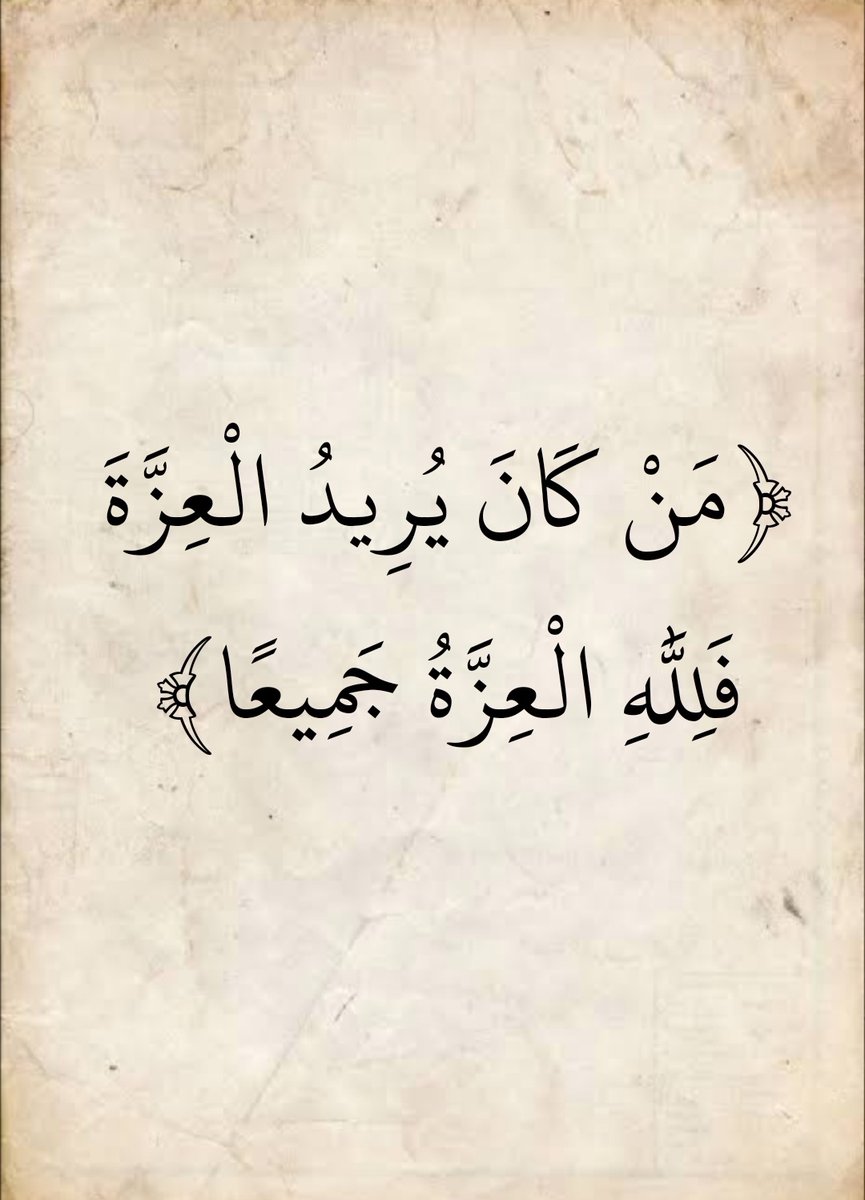 ﴿مَنْ كَانَ يُرِيدُ الْعِزَّةَ
فَلِلَّهِ الْعِزَّةُ جَمِيعًا﴾